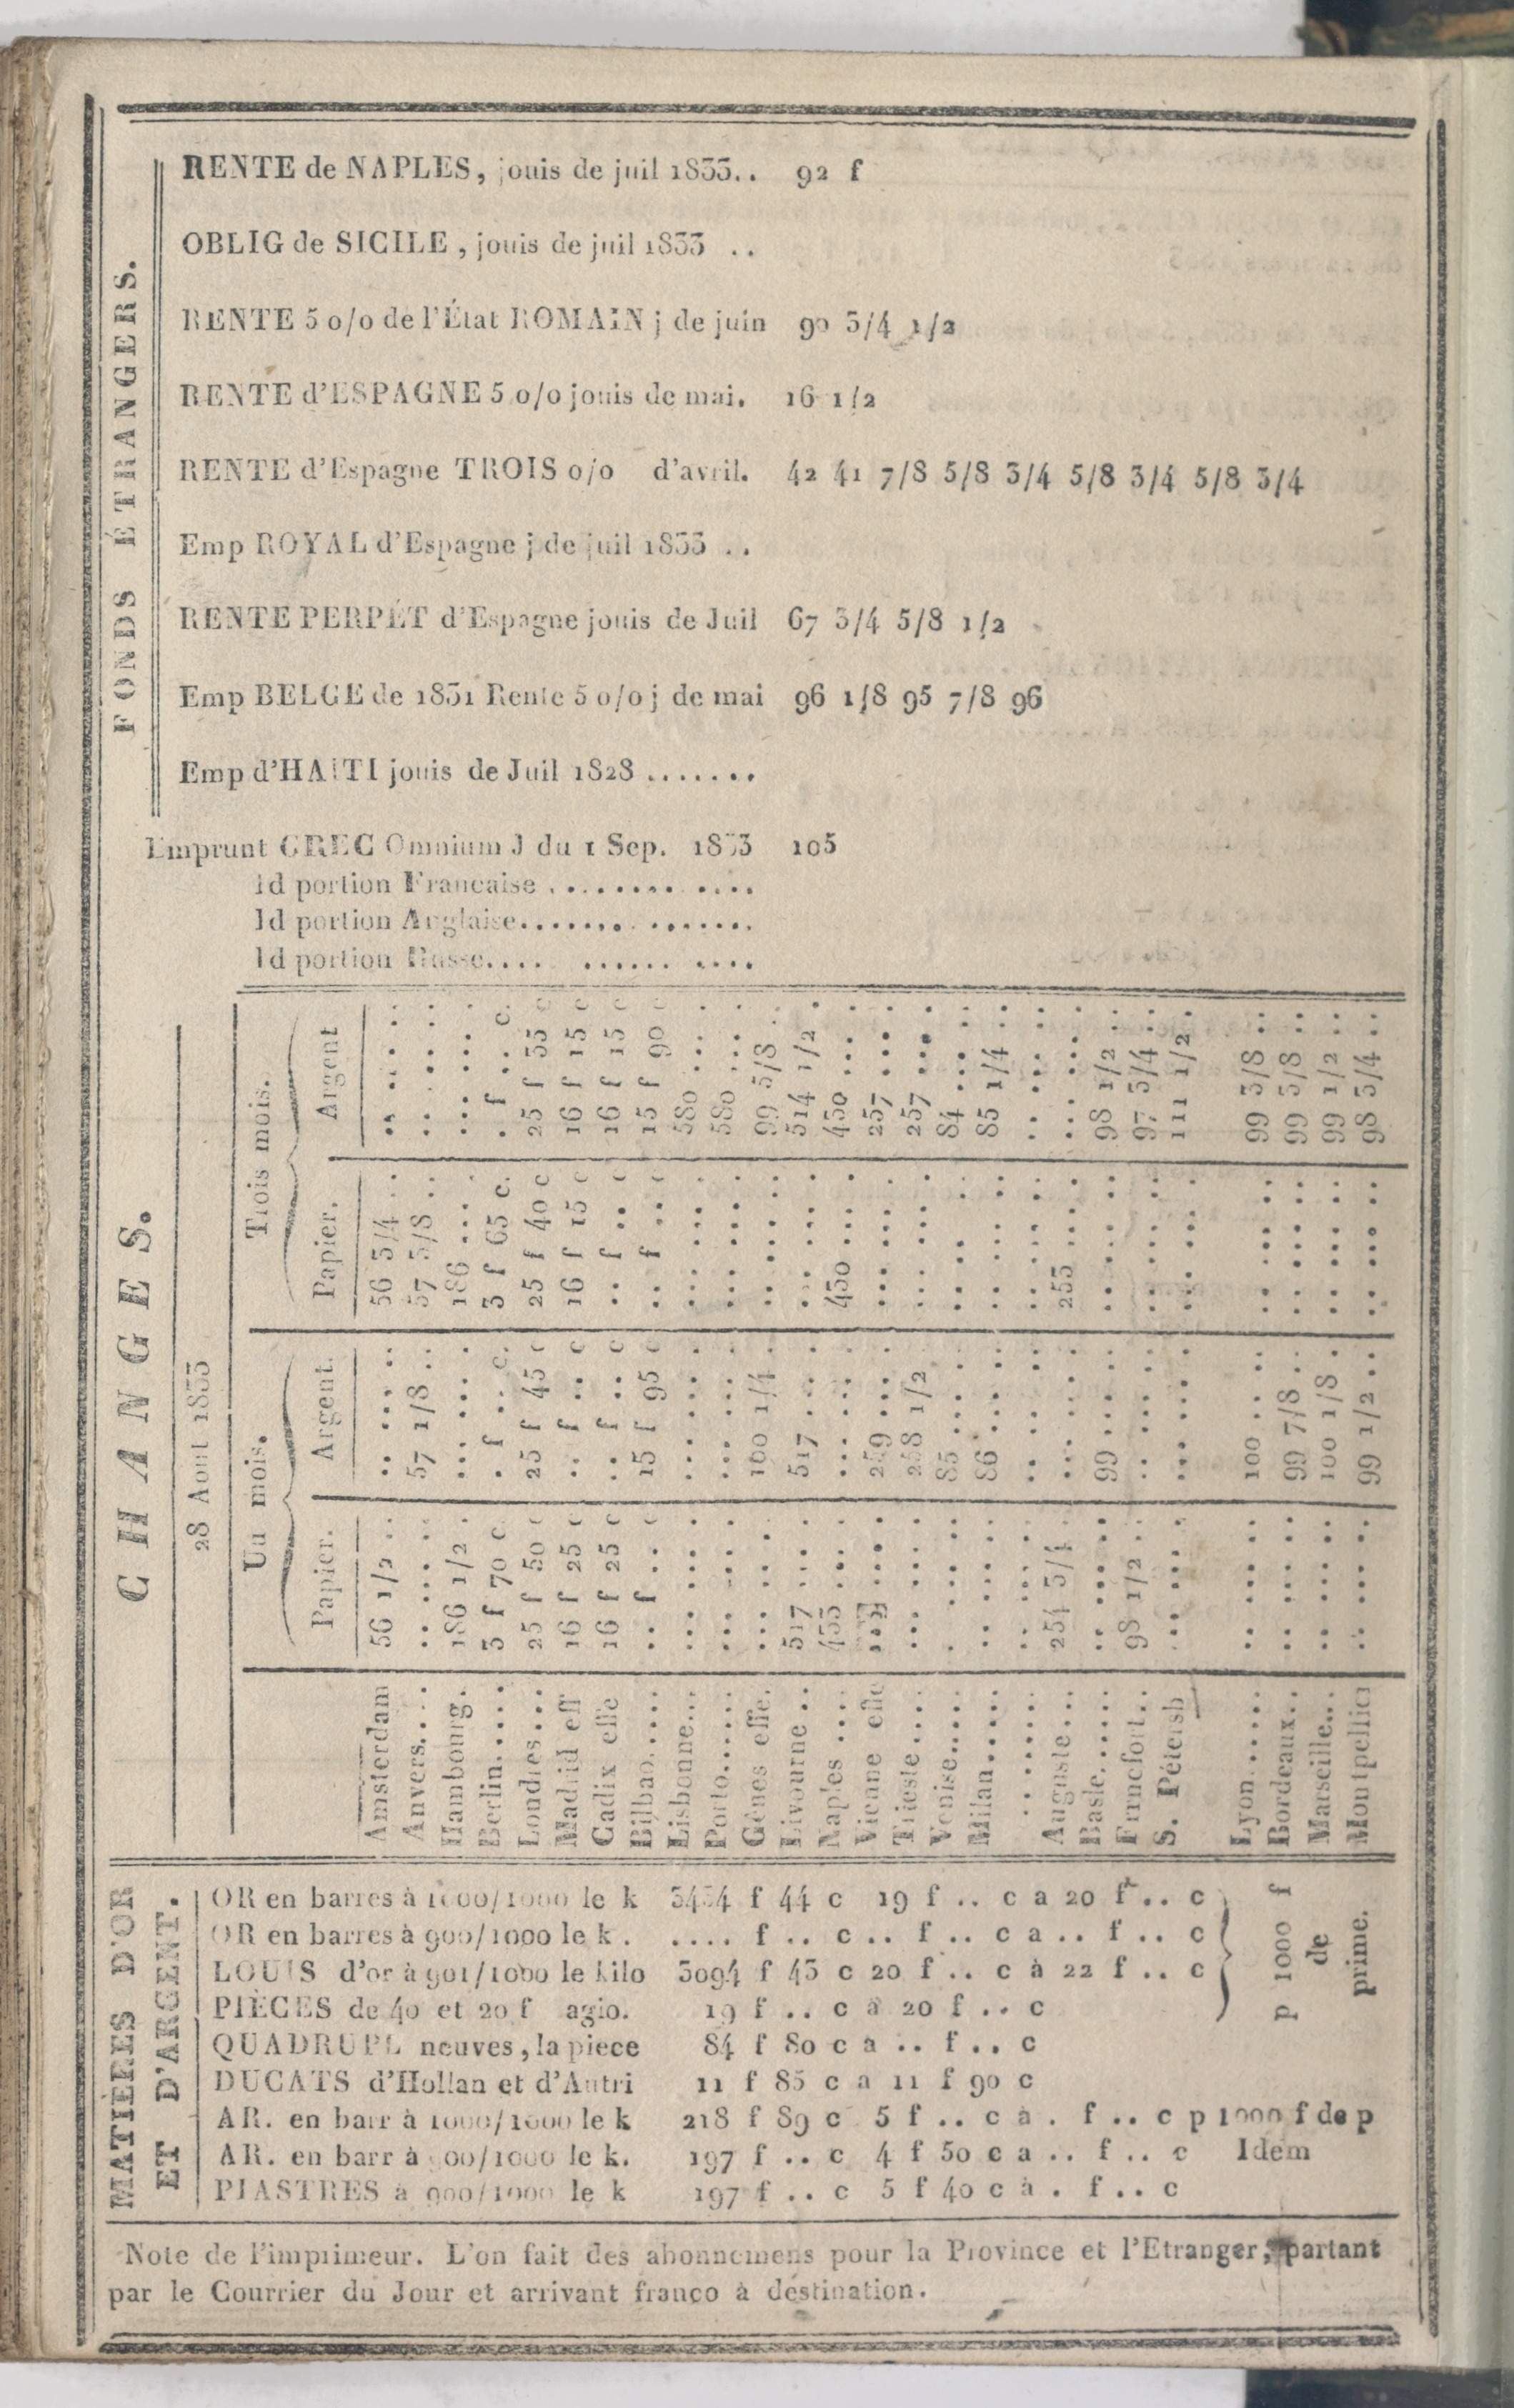 FONDS ÉTRANGERS.
RENTE de NAPLES, jouis de juil 1833.. 92 f
OBLIG de SICILE, jouis de juil 1833 ..
RENTE 5 o/o de l'État ROMAIN j de juin 90 3/4 1/2
RENTE d'ESPAGNE 5 o/o jouis de mai. 16 1/2
RENTE d'Espagne TROIS o/o d'avril. 42 41 7/8 5/8 3/4 5/8 3/4 5/8 3/4
Emp ROYAL d'Espagne j de juil 1833 ..
RENTE PERPÉT d'Espagne jouis de Juil 67 3/4 5/8 1/2
Emp BELGE de 1831 Rente 5 o/o j de mai 96 1/8 95 7/8 96
Emp d'HAITI jouis de Juil 1828 .......
Emprunt GREC Omnium J du 1 Sep. 1833 105
Id portion Francaise ............
Id portion Anglaise...............
Id portion Russe.... ...... ....
CHANGES.
28 Aout 1833
Un mois. Trois mois.
Papier. Argent. Papier. Argent
Amsterdam 56 1/2 .. .. .... .. 56 3/4 .. .. .... ..
Anvers.... .. .... .. 57 1/8 .. 57 3/8 .. .. .... ..
Hambourg. 186 1/2 . ... ... . 186 ... . ... ... .
Berlin..... 3 f 70 c . f .. c. 3 f 65 c. . f .. c.
Londres.... 25 f 50 c 25 f 45 c 25 f 40 c 25 f 35 c
Madrid eff 16 f 25 c .. f .. c 16 f 15 c 16 f 15 c
Cadix effe 16 f 25 c .. f .. c .. f .. c 16 f 15 c
Bilbao..... .. f .. c 15 f 95 c .. f .. c 15 f 90 c
Lisbonne... ... ... . ... ... . ... ... . 580 ... .
Porto...... ... ... . ... ... . ... ... . 580 ... .
Gênes effe. ... ... . 100 1/4 . .. ... . 99 5/8 .
Livourne .. 517 ... . 517 ... . .. ... . 514 1/2 .
Naples .... 433 ... . ... ... . 430 ... . 430 ... .
Vienne effe ... ... . 259 ... . ... ... . 257 ... .
Trieste.... ... ... . 258 1/2 . .. ... . 257 ... .
Venise..... . .. ... . 85 ... .. .. .. .. 84 ... ..
Milan...... .. ... .. 86 ... .. .. ... .. 85 1/4 ..
........ .. ... .. .. ... .. .. ... .. .. ... ..
Auguste... 254 3/4 . ... ... . 253 ... . ... ... .
Basle...... .. .... .. 99 .... .. .. .... .. 98 1/2 ..
Francfort.. 98 1/2 .. .. .... .. .. .... .. 97 3/4 ..
S. Pétersb ... ... . ... ... . ... ... . 111 1/2 .
Lyon...... .. .... .. 100 .. .. .. .... .. 99 3/8 ..
Bordeaux.. .. .... .. 99 7/8 .. .. .... .. 99 3/8 ..
Marseille... .. .... .. 100 1/8 . .. .... .. 99 1/2 ..
Montpellier .. .... .. 99 1/2 .. .. .... .. 98 3/4 ..
MATIÈRES D'OR
ET D'ARGENT.
OR en barres à 1000/1000 le k 3434 f 44 c 19 f .. c a 20 f .. c
OR en barres à 900/1000 le k . .... f .. c .. f .. c a .. f .. c
LOUIS d'or à 901/1000 le kilo 3094 f 43 c 20 f .. c à 22 f .. c
PIÈCES de 40 et 20 f agio. 19 f .. c à 20 f .. c
p 1000 f
de
prime.
QUADRUPL neuves, la piece 84 f 80 c a .. f .. c
DUCATS d'Hollan et d'Autri 11 f 85 c a 11 f 90 c
AR. en barr à 1000/1000 le k 218 f 89 c 5 f .. c à . f .. c p 1000 f de p
AR. en barr à 900/1000 le k. 197 f .. c 4 f 50 c a .. f .. c Idem
PIASTRES à 900/1000 le k 197 f .. c 5 f 40 c à . f .. c
Note de l'imprimeur. L'on fait des abonnemens pour la Province et l'Etranger, partant
par le Courrier du Jour et arrivant franco à destination.